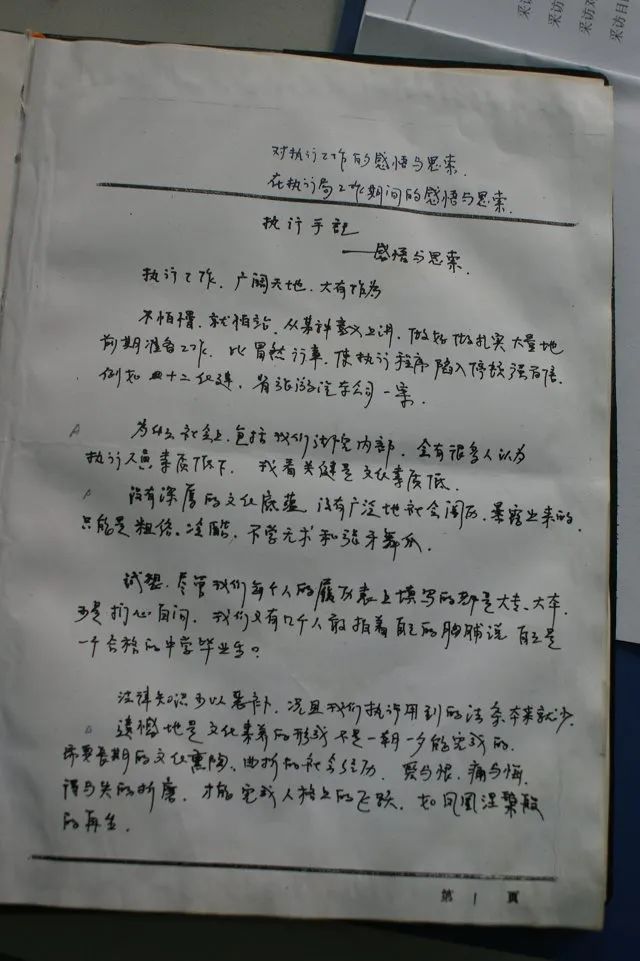 采访
采访
采访对
采访日
对执行工作的感悟与思索
在执行局工作期间的感悟与思索
执行手记
——感悟与思索
执行工作,广阔天地,大有作为
不怕慢,就怕站,从某种意义上讲,做好做扎实大量地
前期准备工作,比冒然行事,使执行程序陷入停顿强百倍。
例如四十二 汽车公司一案。
为什么社会上,包括我们法院内部,会有很多人认为
执行人员素质低下,我看关健是文化素质低。
没有深厚的文化底蕴,没有广泛地社会阅历,暴露出来的
只能是粗俗、冷酷,不学无术和张牙舞爪。
试想,尽管我们每个人的履历表上填写的都是大专、大本,
可是扪心自问,我们又有几个人敢拍着自己的胸脯说自己是
一个合格的中学毕业生?
法律知识可以恶补,况且我们执行用到的法条本来就少,
遗憾地是文化素养的形成不是一朝一夕能完成的,
需要长期的文化熏陶、曲折的社会经历,爱与恨,痛与悔,
得与失的折磨,才能完成人格上的飞跃,如凤凰涅槃般
的再生。
第 1 頁